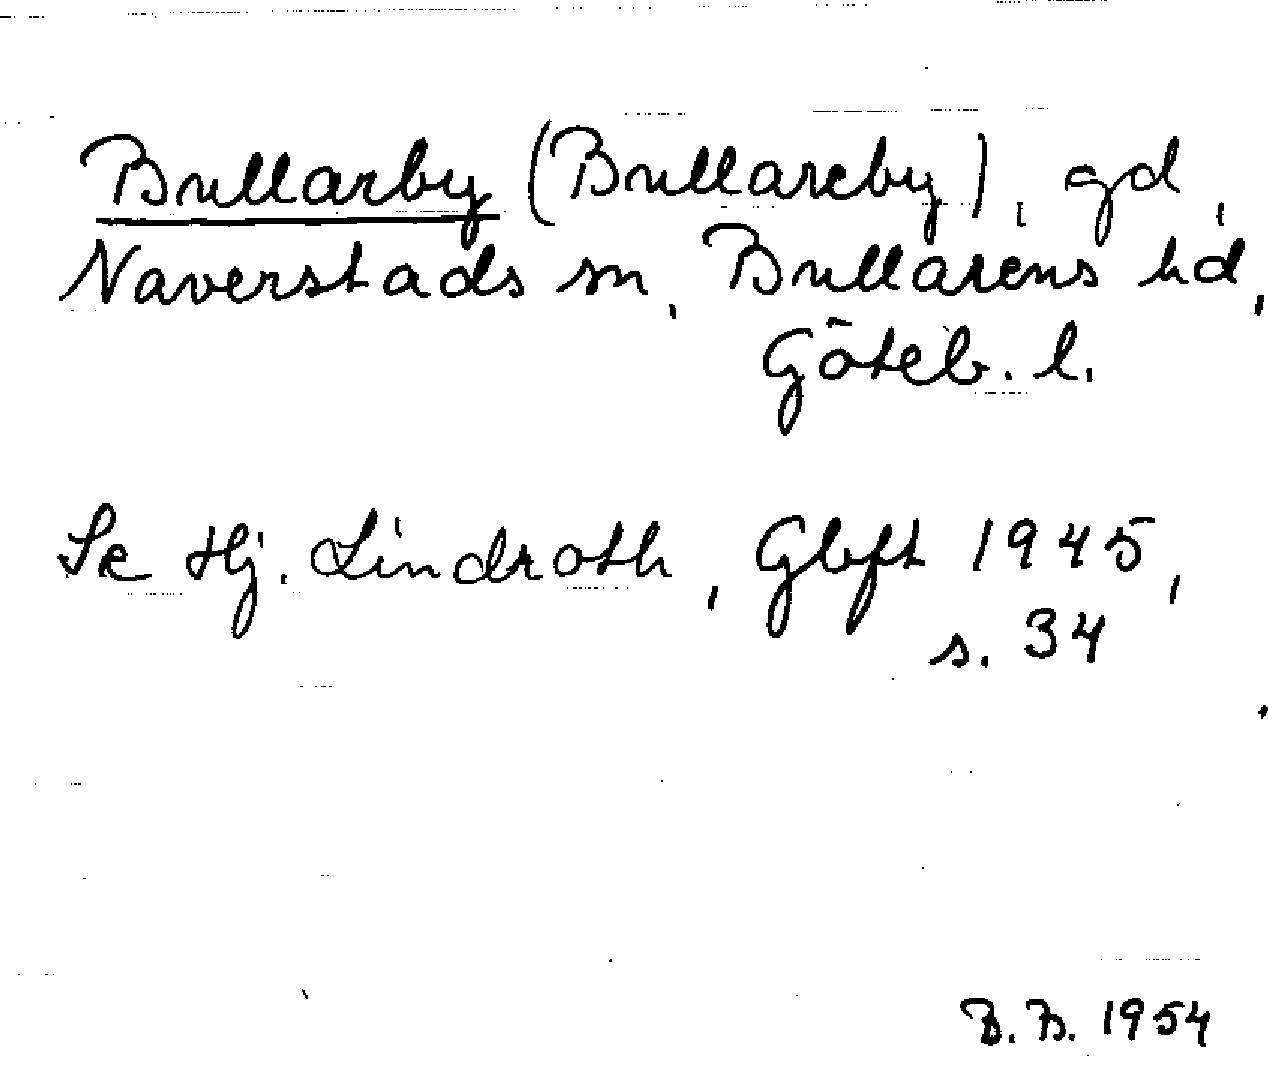 Bullarby (Bullareby), gd,
Naverstads sn, Bullarens hd,
Göteb. l.
Se Hj. Lindroth, Gbft 1945,
s. 34
B.B. 1954